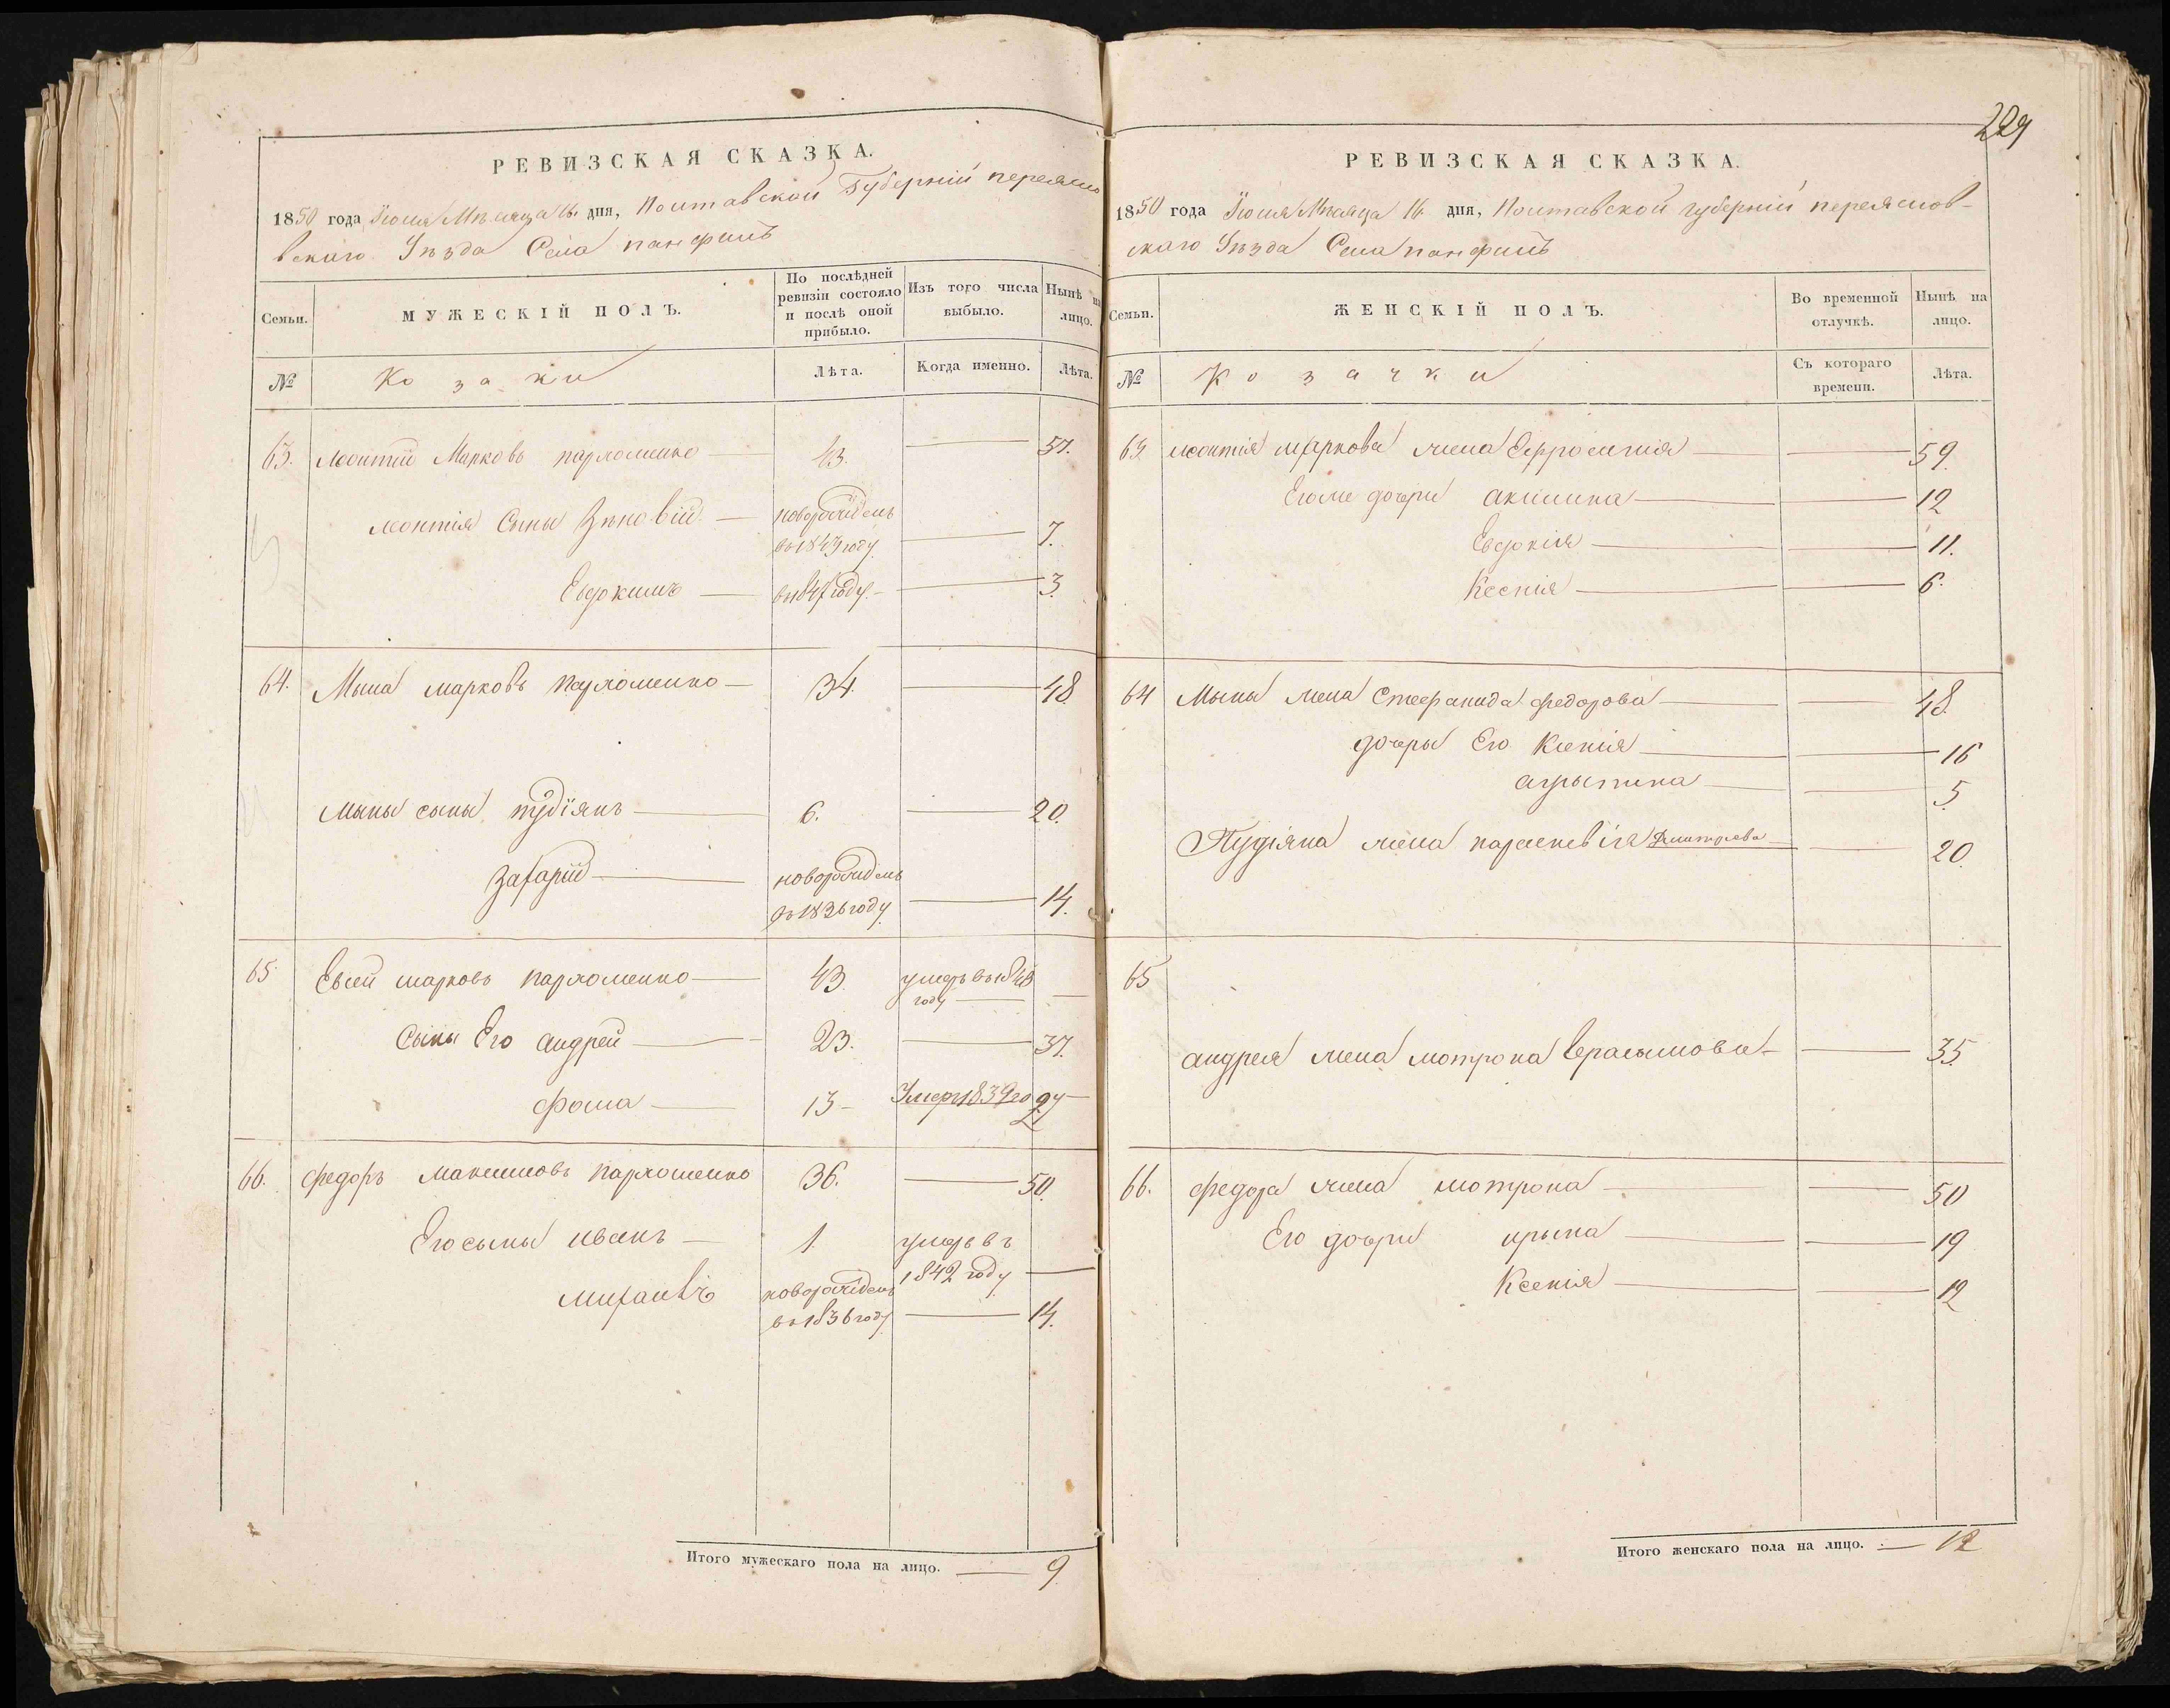 РЕВИЗСКАЯ СКАЗКА.
1850 года Іюля Мѣсяца 16 дня, Полтавской Губерніи переясло
вскаго Уѣзда Села панфилъ
Семьи.
МУЖЕСКІЙ ПОЛЪ.
По послѣдней ревизіи состояло и послѣ оной прибыло.
Изъ того числа выбыло.
Нынѣ на лицо.
№
Козаки
Лѣта.
Когда именно.
Лѣта.
63. леонтій Марковъ пархоменко 43. 57.
леонтія Сыны Зѣновій новорожденъ въ 1843 году 7.
Евдокимъ въ 1847 году 3.
64. Мына марковъ пархоменко 34. 48.
мыны сыны пудіянъ 6. 20.
Захарій новорожденъ въ 1836 году 14.
65 Евсей марковъ пархоменко 43. умеръ въ 1848 году
Сыны Его андрей 23. 37.
фома 13 Умеръ 1839 году
66. федоръ максимовъ пархоменко 36. 50.
Его сыны иванъ 1. умеръ въ 1842 году
михаилъ новорожденъ въ 1836 году 14.
Итого мужескаго пола на лицо. 9
229
РЕВИЗСКАЯ СКАЗКА.
1850 года Іюля Мѣсяца 16 дня, Полтавской губерніи переяслов-
скаго Уѣзда Села панфилъ
Семьи.
ЖЕНСКІЙ ПОЛЪ.
Во временной отлучкѣ.
Нынѣ на лицо.
№
Козачки
Съ котораго времени.
Лѣта.
63 леонтія маркова жена Ефросинія 59.
Его же дочери акилина 12
Евдокія 11.
Ксенія 6.
64 Мыны жена Стефанида федорова 48.
дочеры Его Ксенія 16
агрыпина 5.
Пудіяна жена параскевія Дмитрова 20.
65
андрея жена мотрона Герасымова 35.
66. федора жена мотрона 50
Его дочери ирына 19
Ксенія 12
Итого женскаго пола на лицо. 12